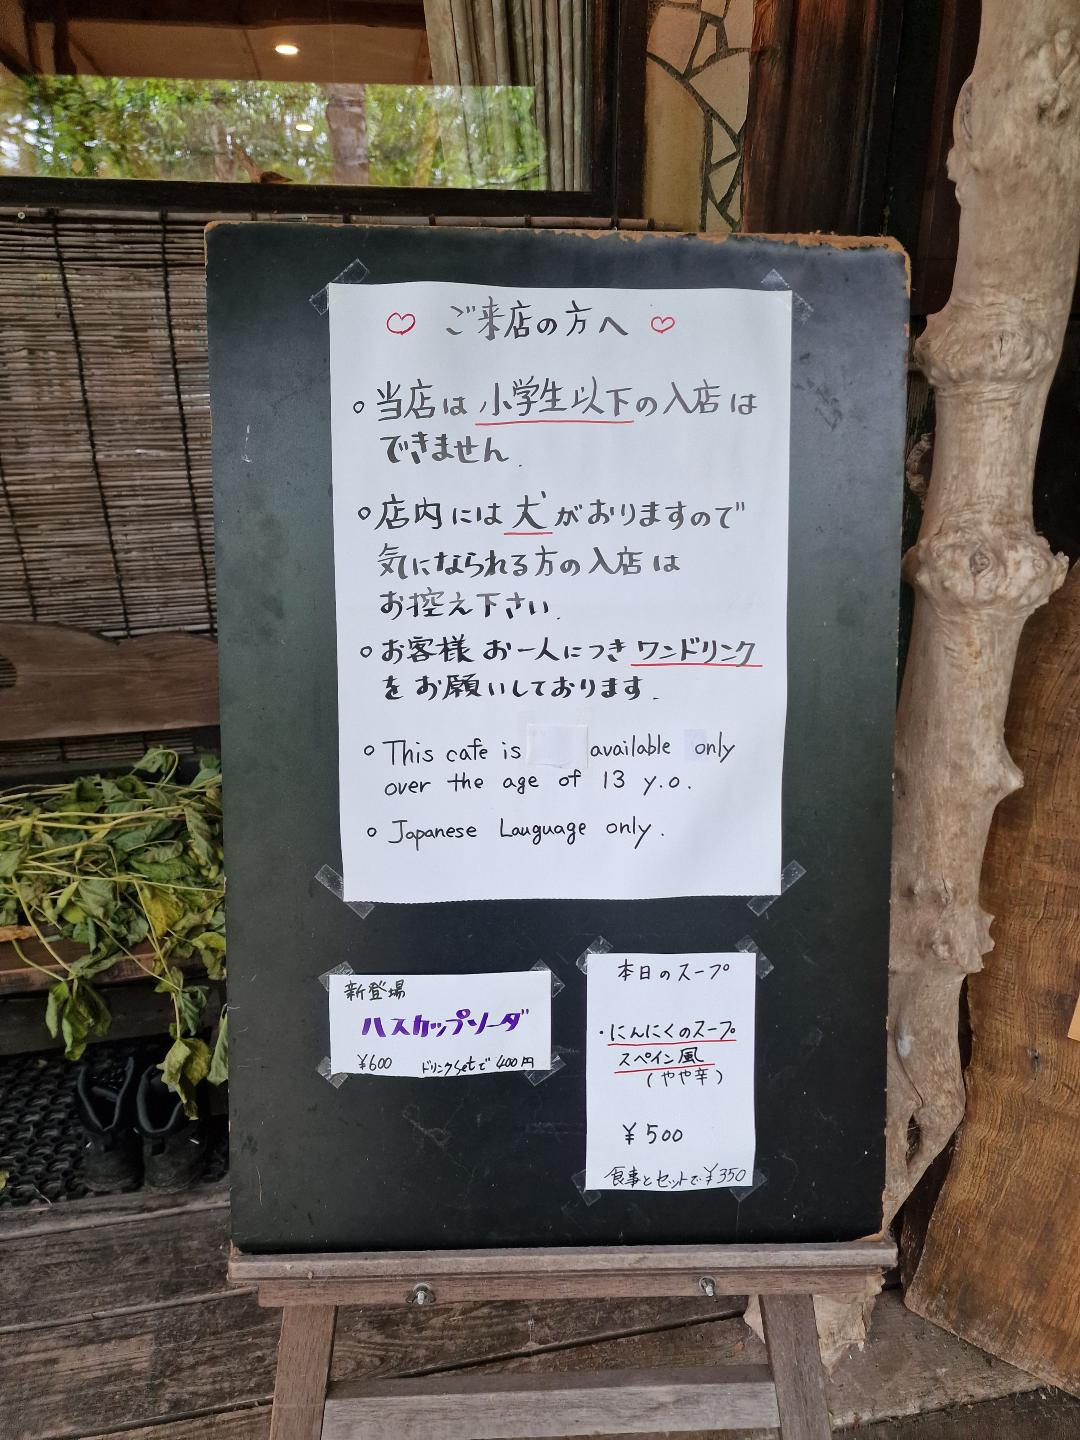 ♡ ご来店の方へ ♡
○ 当店は 小学生以下の入店は
できません.
○ 店内には 犬 がおりますので
気になられる方の入店は
お控え下さい.
○ お客様 お一人につき ワンドリンク
を お願いしております.
○ This cafe is available only
over the age of 13 y.o.
○ Japanese Lauguage only.
新登場
ハスカップソーダ
¥600 ドリンクsetで 400円
本日のスープ
・にんにくのスープ
スペイン風
(やや辛)
¥500
食事とセットで¥350